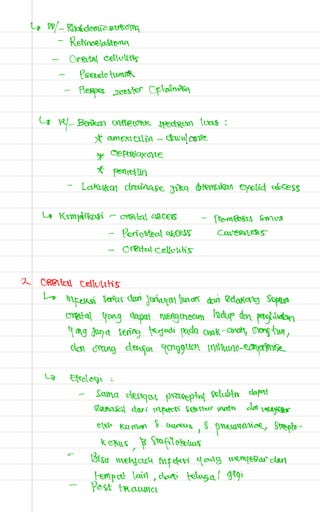 ↳ DD/ - Rhabdomiosarkoma
- Retinoblastoma
- Orbital cellulitis
- Pseudotumor
- Herpes zoster Oftalmika
↳ R/ - Berikan antibiotik spectrum luas :
* amoxicilin - clavulanate
* ceftriaxone
* penicilin
- Lakukan drainase jika ditemukan eyelid abscess
↳ Komplikasi - orbital abscess - trombosis sinus
- Periosteal abscess cavernosus
- Orbital cellulitis
2. Orbital Cellulitis
↳ Infeksi serius dari jaringan lunak dari belakang septum
orbital yang dapat mengancam hidup dan penglihatan
yang juga sering terjadi pada anak-anak, orang tua,
dan orang dengan gangguan immuno-compromise
↳ Etiologi :
- Sama dengan preseptal selulitis dapat
berasal dari infeksi sekitar mata dan menyebar
oleh kuman S. aureus, S. pneumoniae, Strepto-
kokus, & Stafilokokus
- Bisa menjadi infeksi yang menyebar dari
tempat lain, dari telinga / gigi
- Post trauma